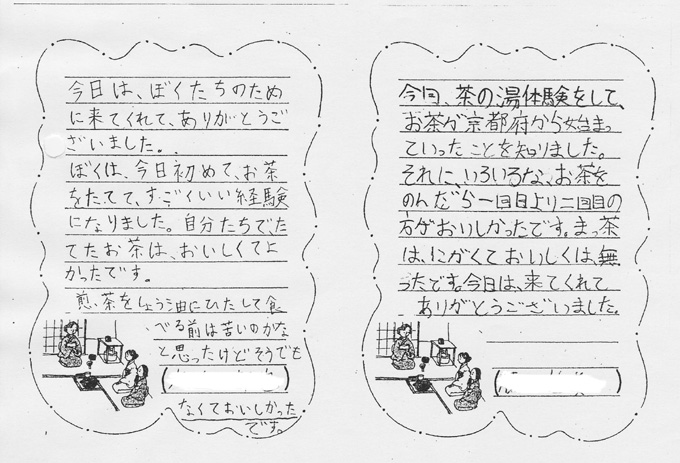 今日は、ぼくたちのため
に来てくれて、ありがとうご
ざいました。
ぼくは、今日初めて、お茶
をたてて、すごくいい経験
になりました。自分たちでた
てたお茶は、おいしくてよ
かったです。
煎茶をしょう油にひたして食
べる前は苦いのかな
と思ったけどそうでも
なくておいしかった
です。
今日、茶の湯体験をして、
お茶が京都府から始まっ
ていったことを知りました。
それに、いろいろな、お茶を
のんだら一回目より二回目の
方がおいしかったです。まっ茶
は、にがくておいしくは、無
ったです。今日は、来てくれて
ありがとうございました。